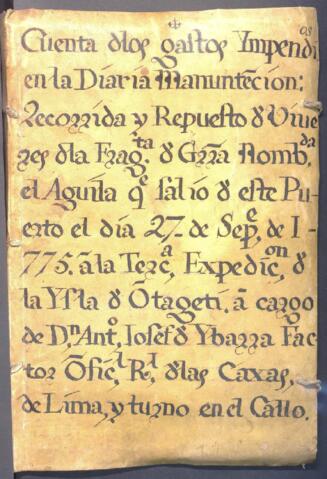 Cuenta dlos gastos Ympendos
en la Diaria Manuntecion:
Recorrida y Repuesto d Vive
res dla Fragta. d Grra Nombda
el Aguila qe. salio d este Pu-
erto el dia 27. de Sepe, de 1-
775. a la Terca, Expedicon, d
la Ysla d Otageti, a cargo
de Dn. Anto, Iosef d Ybarra Fac-
tor Oficl, Rl dlas Caxas,
de Lima, y turno en el Callo.